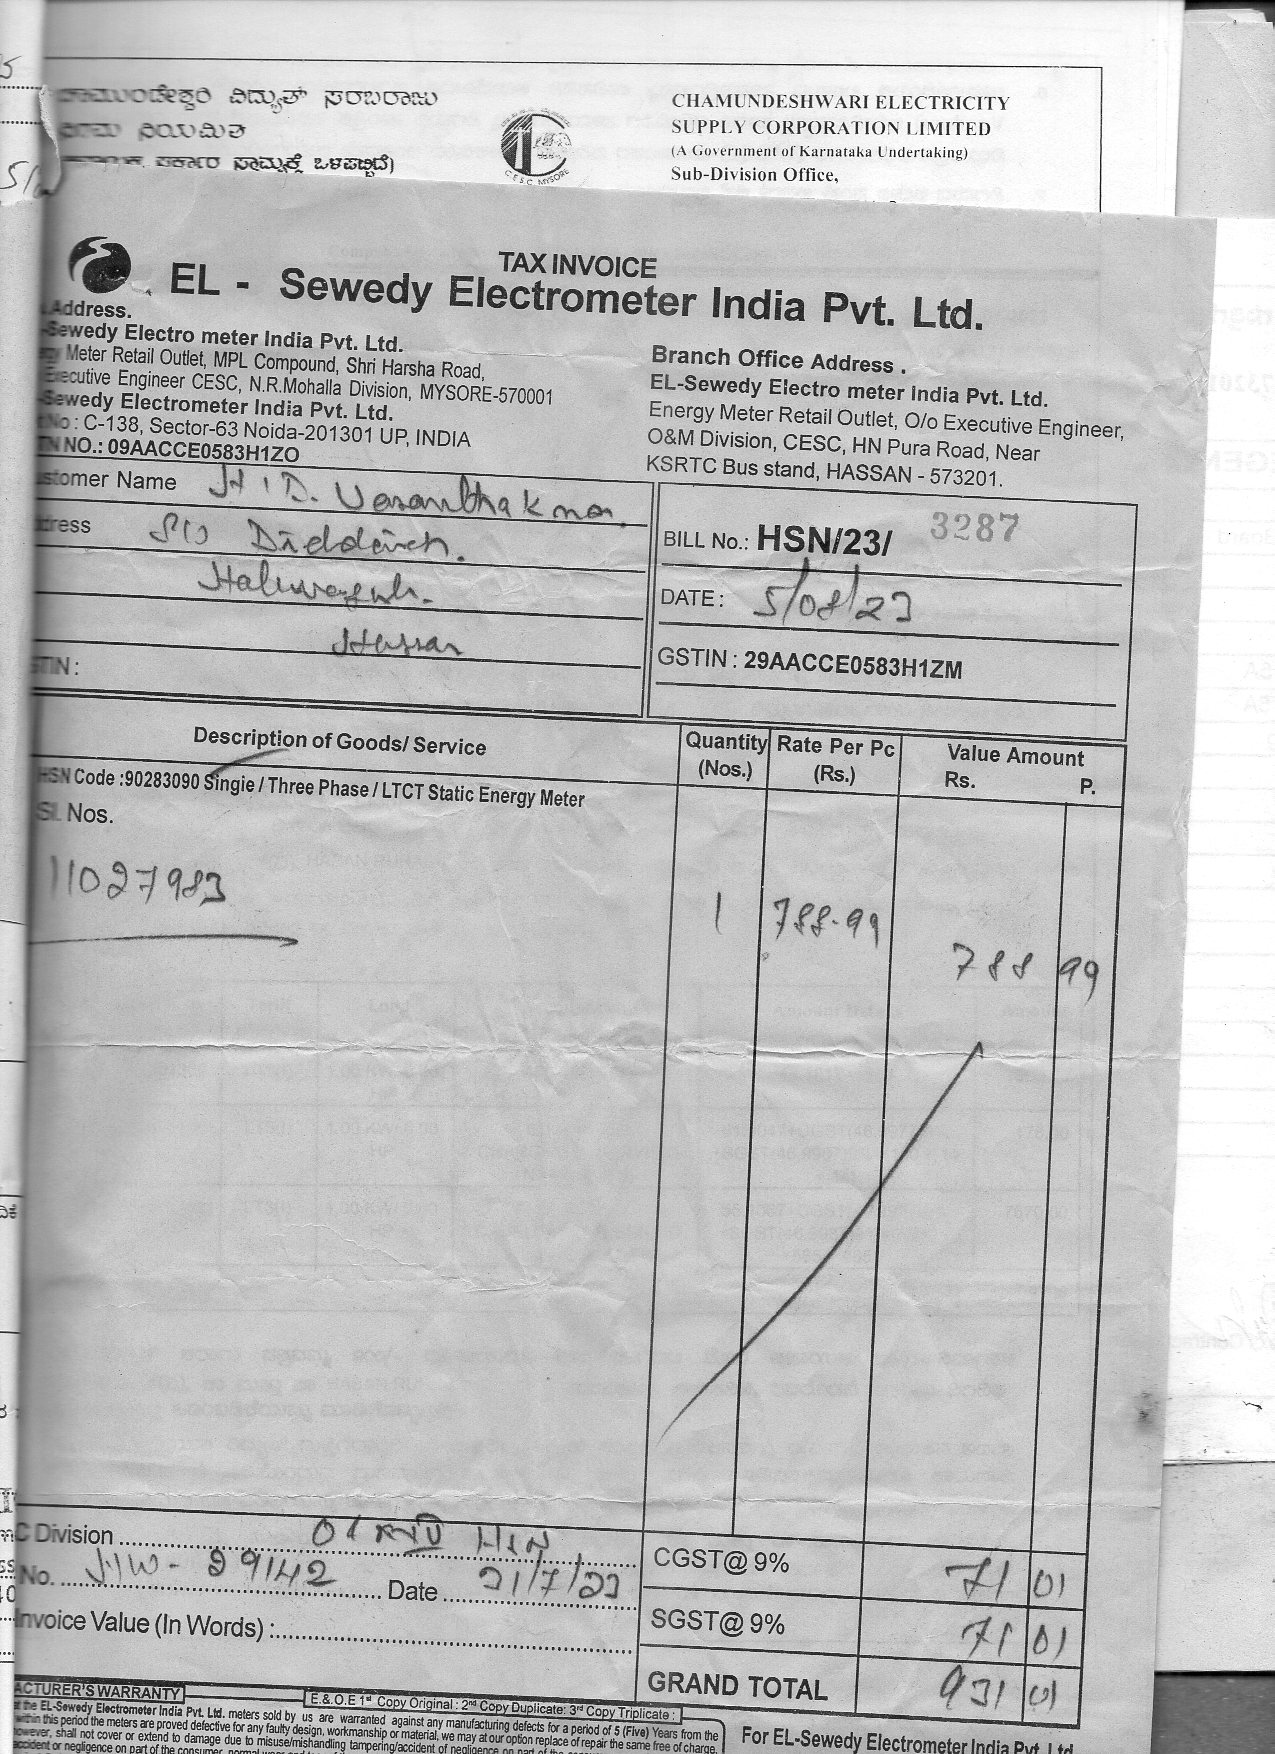 ವಿದ್ಯುತ್ ಸರಬರಾಜು
ನಿಯಮಿತ
ಒಳಪಟ್ಟಿದೆ)
CHAMUNDESHWARI ELECTRICITY
SUPPLY CORPORATION LIMITED
(A Government of Karnataka Undertaking)
Sub-Division Office,
C.E.S.C. MYSORE
TAX INVOICE
EL - Sewedy Electrometer India Pvt. Ltd.
Address.
-Sewedy Electro meter India Pvt. Ltd.
Meter Retail Outlet, MPL Compound, Shri Harsha Road,
Executive Engineer CESC, N.R.Mohalla Division, MYSORE-570001
-Sewedy Electrometer India Pvt. Ltd.
No : C-138, Sector-63 Noida-201301 UP, INDIA
NO.: 09AACCE0583H1ZO
Branch Office Address .
EL-Sewedy Electro meter India Pvt. Ltd.
Energy Meter Retail Outlet, O/o Executive Engineer,
O&M Division, CESC, HN Pura Road, Near
KSRTC Bus stand, HASSAN - 573201.
stomer Name H.D.
dress S/o
Hassan
STIN :
BILL No.: HSN/23/ 3287
DATE : 5/08/23
GSTIN : 29AACCE0583H1ZM
Description of Goods/ Service
Quantity (Nos.)
Rate Per Pc (Rs.)
Value Amount
Rs. P.
HSN Code :90283090 Singie / Three Phase / LTCT Static Energy Meter
Sl. Nos.
11027983
1 788.99 788 99
C Division HSN
No. 29142 Date 21/7/23
Invoice Value (In Words) :
CGST@ 9% 71 01
SGST@ 9% 71 01
GRAND TOTAL 931 01
ACTURER'S WARRANTY
E.& O.E 1st Copy Original : 2nd Copy Duplicate: 3rd Copy Triplicate :
the EL-Sewedy Electrometer India Pvt. Ltd. meters sold by us are warranted against any manufacturing defects for a period of 5 (Five) Years from the
within this period the meters are proved defective for any faulty design, workmanship or material, we may at our option replace of repair the same free of charge.
however, shall not cover or extend to damage due to misuse/mishandling tampering/accident of negligence on part of the
accident or negligence on part of the consumer, normal
For EL-Sewedy Electrometer India Pvt. Ltd